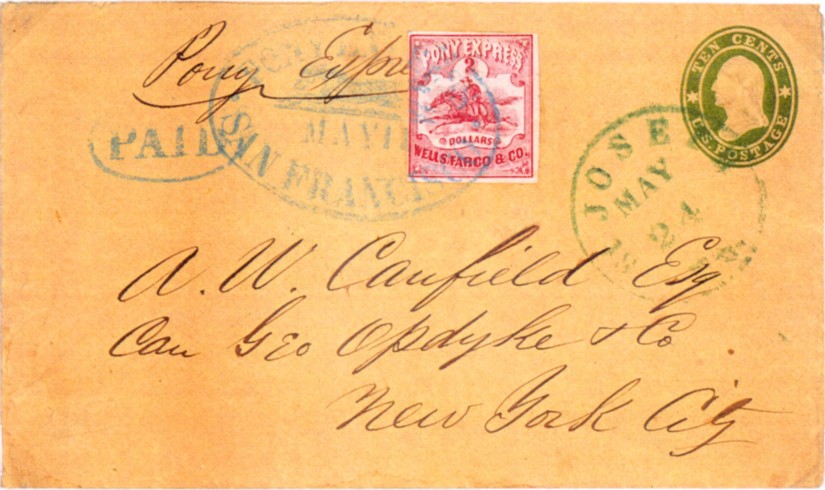 Pony Express
PAID
PONY EXPRESS
MAY 11
SAN FRANCISCO
PONY EXPRESS
2
DOLLARS
WELLS, FARGO & CO.
TEN CENTS
U.S. POSTAGE
JOSE
MAY
24
A. W. Canfield Esq
Care Geo Opdyke & Co
New York City